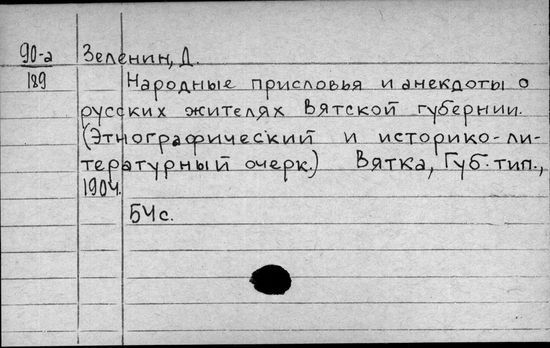 90-а Зеленин, Д.
189 Народные присловья и анекдоты о
русских жителях Вятской губернии.
(Этнографический и историко-ли-
тературный очерк.) Вятка, Губ. тип.,
1904.
54 с.